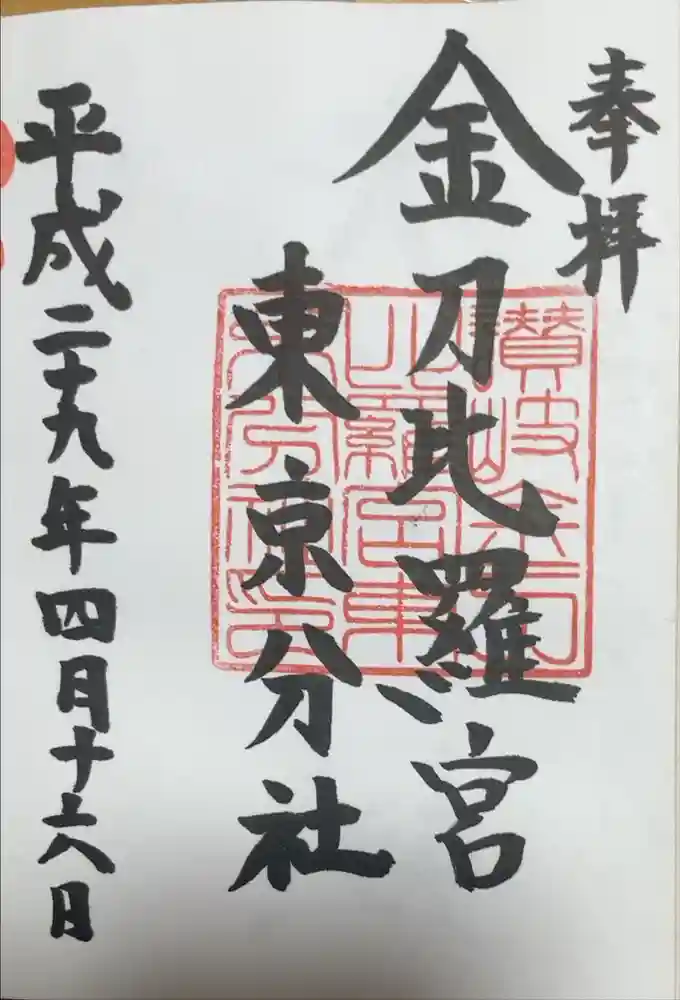 奉拝
金刀比羅宮
東京分社
平成二十九年四月十六日
讃岐金刀
比羅宮東
京分社印